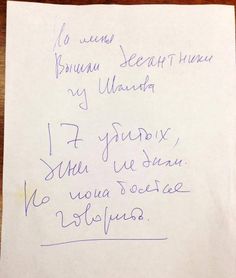 Ко мне
Вышли десантники
из Шалова
17 убитых,
Они не дали.
Но пока боятся
говорить.